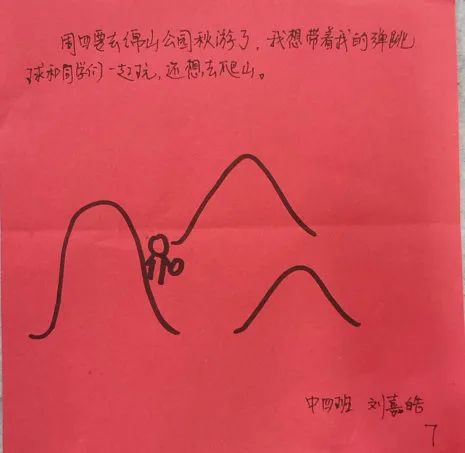 周四要去绵山公园秋游了，我想带着我的弹跳
球和同学们一起玩，还想去爬山。
中四班 刘嘉皓
7